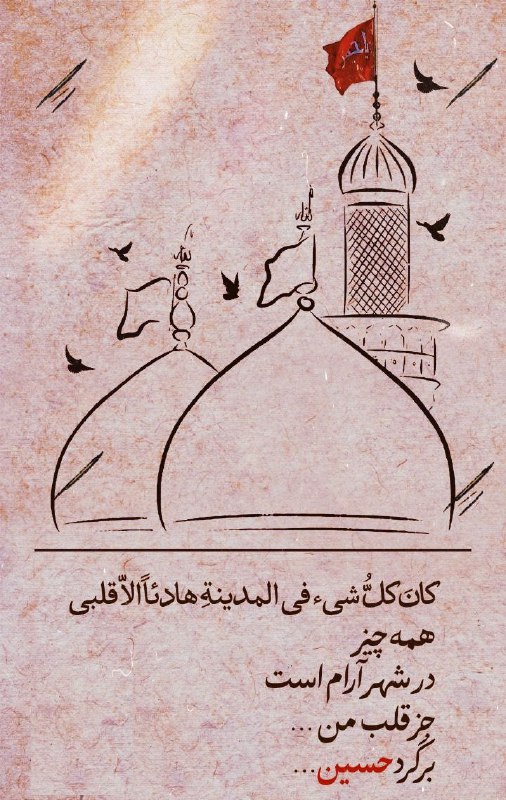 الله
الله
کانَ کلُّ شیء فی المدینةِ هادئاً الاّ قلبی
همه چیز
در شهر آرام است
جز قلب من ...
برگرد حسین...